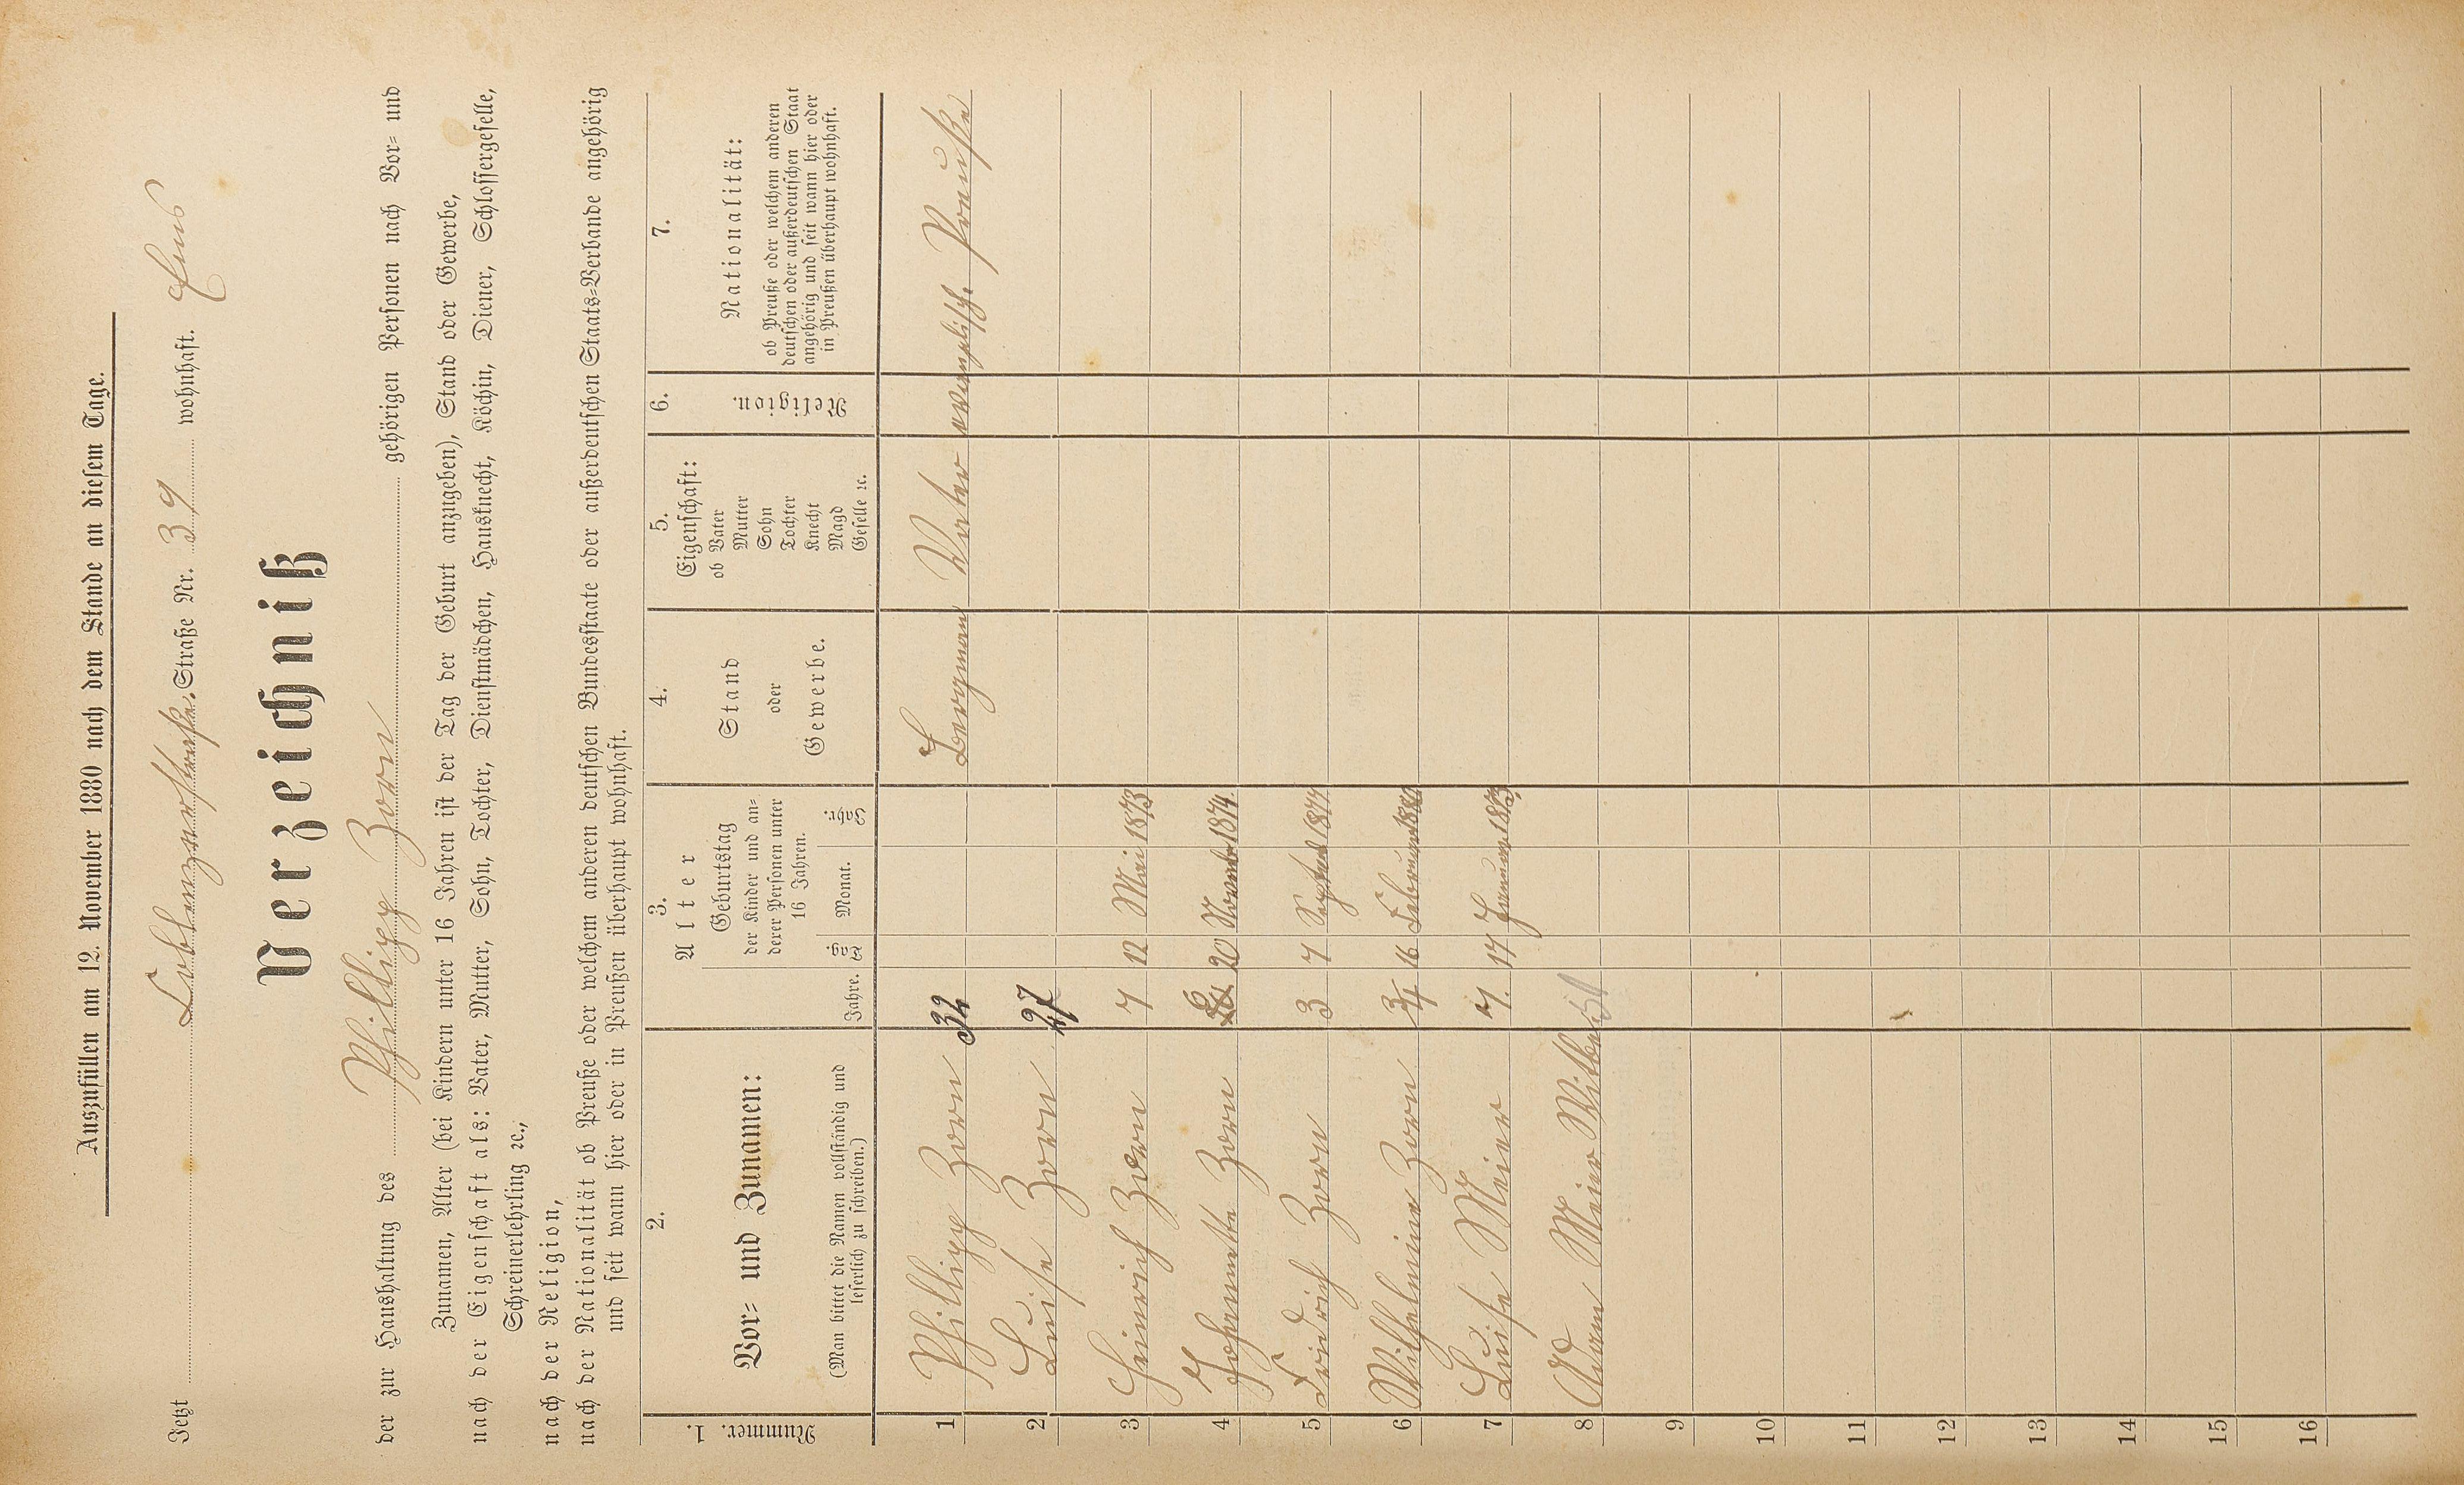 Auszufüllen am 12. November 1880 nach dem Stande an diesem Tage.
Jetzt Coblenzerstraße. Straße Nr. 39 wohnhaft. Ems
Verzeichniß
der zur Haushaltung des Phillipp Zorn gehörigen Personen nach Vor- und
Zunamen, Alter (bei Kindern unter 16 Jahren ist der Tag der Geburt anzugeben), Stand oder Gewerbe,
nach der Eigenschaft als: Vater, Mutter, Sohn, Tochter, Dienstmädchen, Hausknecht, Köchin, Diener, Schlossergeselle,
Schreinerlehrling ꝛc.,
nach der Religion,
nach der Nationalität ob Preuße oder welchem anderen deutschen Bundesstaate oder außerdeutschen Staats-Verbande angehörig
und seit wann hier oder in Preußen überhaupt wohnhaft.
1.
Nummer.
2.
Vor- und Zunamen:
(Man bittet die Namen vollständig und
leserlich zu schreiben.)
3.
Alter
Jahre.
Geburtstag
der Kinder und an-
derer Personen unter
16 Jahren.
Tag Monat. Jahr.
4.
Stand
oder
Gewerbe.
5.
Eigenschaft:
ob Vater
Mutter
Sohn
Tochter
Knecht
Magd
Geselle ꝛc.
6.
Religion.
7.
Nationalität:
ob Preuße oder welchem anderen
deutschen oder außerdeutschen Staat
angehörig und seit wann hier oder
in Preußen überhaupt wohnhaft.
1 Phillipp Zorn 32 Bergman Vater evanglisch. Preuße
2 Luise Zorn 27
3 Heinrich Zorn 7 12 Mai 1873
4 Johannette Zorn 20 1874.
5 Fridrich Zorn 3 7 1877
6 Wilhelmine Zorn 3/4 16 Februar 1880
7 Luise Meier 7. 17 Januar 1873
8 Adam Meier
9
10
11
12
13
14
15
16